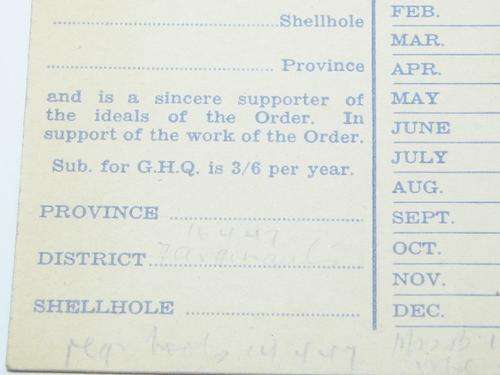 Shellhole
Province
and is a sincere supporter of
the ideals of the Order. In
support of the work of the Order.
Sub. for G.H.Q. is 3/6 per year.
PROVINCE
DISTRICT
SHELLHOLE
FEB.
MAR.
APR.
MAY
JUNE
JULY
AUG.
SEPT.
OCT.
NOV.
DEC.